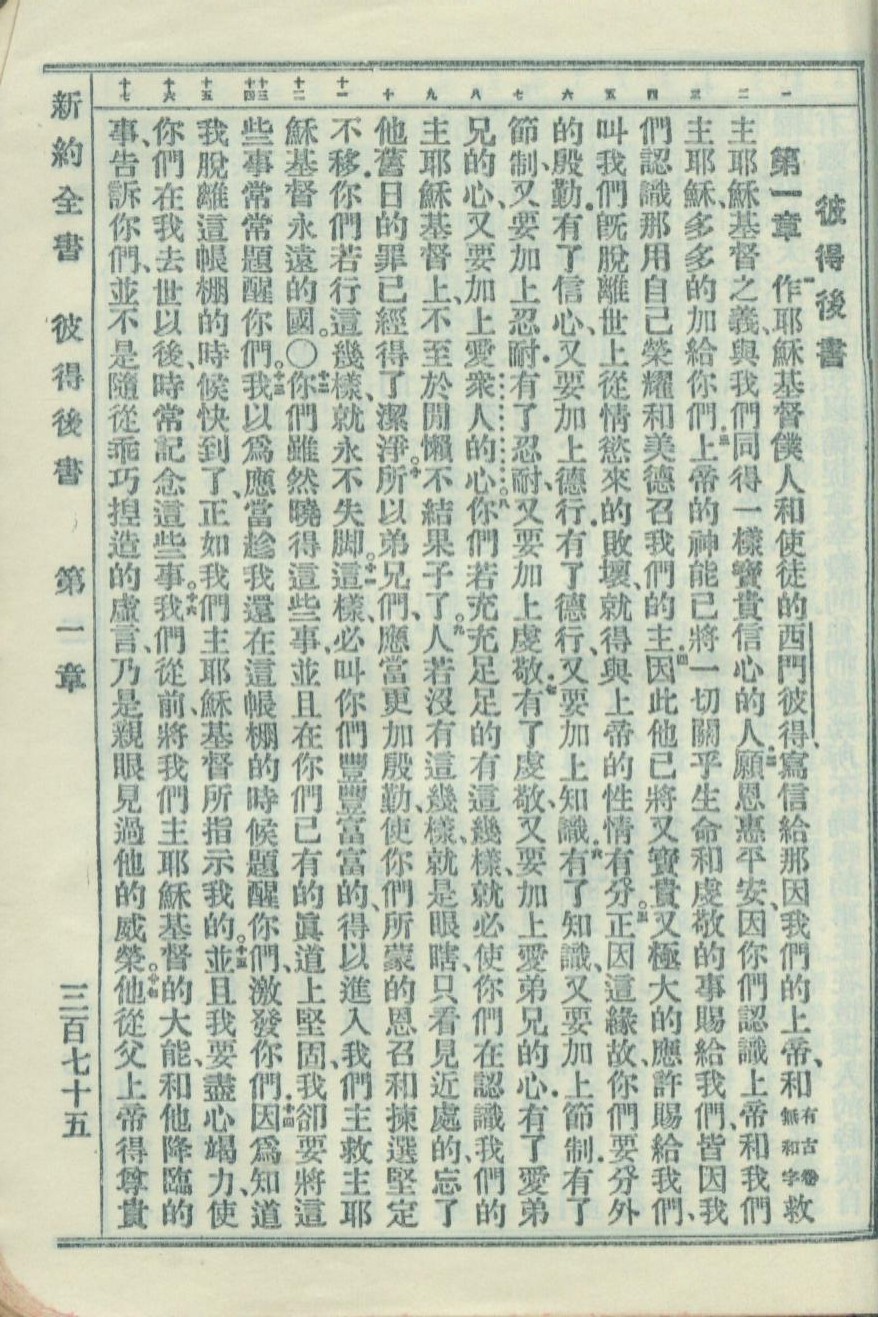 彼得後書
一 二 三 四 五 六 七 八 九 十 十一 十二 十三 十四 十五 十六 十七
第一章 一作耶穌基督僕人和使徒的西門彼得、寫信給那因我們的上帝、和有古卷無和字救
主耶穌基督之義、與我們同得一樣寶貴信心的人。二願恩惠平安、因你們認識上帝和我們
主耶穌、多多的加給你們。三上帝的神能已將一切關乎生命和虔敬的事賜給我們、皆因我
們認識那用自己榮耀和美德召我們的主。四因此他已將又寶貴又極大的應許賜給我們、
叫我們旣脫離世上從情慾來的敗壞、就得與上帝的性情有分。五正因這緣故、你們要分外
的殷勤。有了信心、又要加上德行。有了德行、又要加上知識。六有了知識、又要加上節制。有了
節制、又要加上忍耐。有了忍耐、又要加上虔敬。七有了虔敬、又要加上愛弟兄的心。有了愛弟
兄的心、又要加上愛衆人的心。八你們若充充足足的有這幾樣、就必使你們在認識我們的
主耶穌基督上、不至於閒懶不結果子了。九人若沒有這幾樣、就是眼瞎、只看見近處的、忘了
他舊日的罪已經得了潔淨。十所以弟兄們、應當更加殷勤、使你們所蒙的恩召和揀選堅定
不移。你們若行這幾樣、就永不失脚。十一這樣、必叫你們豐豐富富的、得以進入我們主救主耶
穌基督永遠的國。〇十二你們雖然曉得這些事、並且在你們已有的眞道上堅固、我卻要將這
些事常常題醒你們。十三我以爲應當趁我還在這帳棚的時候題醒你們、激發你們。十四因爲知道
我脫離這帳棚的時候快到了、正如我們主耶穌基督所指示我的。十五並且我要盡心竭力、使
你們在我去世以後、時常記念這些事。十六我們從前將我們主耶穌基督的大能、和他降臨的
事、告訴你們、並不是隨從乖巧揑造的虛言、乃是親眼見過他的威榮。十七他從父上帝得尊貴
新約全書 彼得後書 第一章 三百七十五